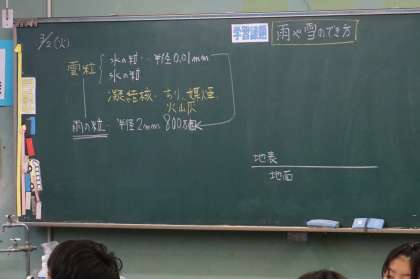 3/2(火)
学習課題 雨や雪のでき方
雲粒 水の粒…半径0.01mm
氷の粒
凝結核…ちり、煤煙、
火山灰
雨の粒…半径2mm 800万個
地表
地面